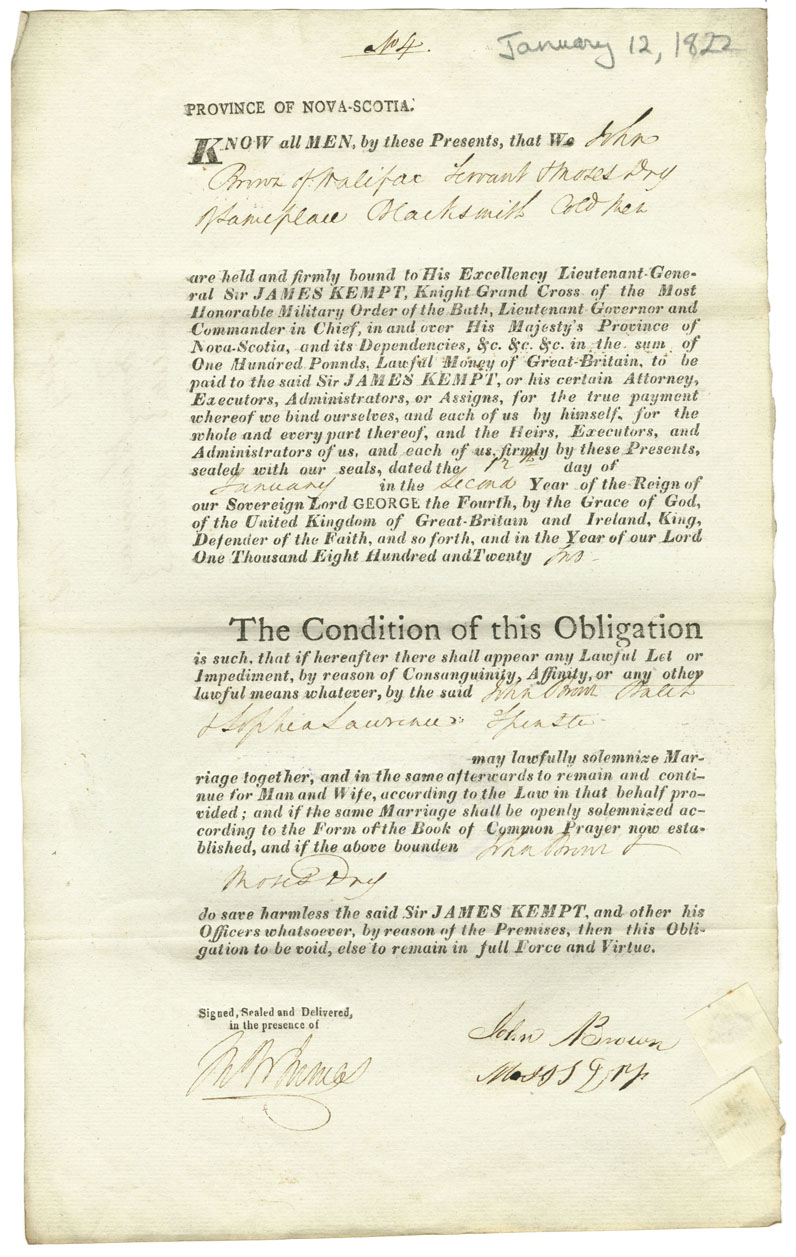 No 4.
January 12, 1822
PROVINCE OF NOVA-SCOTIA.
KNOW all MEN, by these Presents, that We John
Brown of Halifax Servant & Moses Dry
of same place Blacksmith Cold Men
are held and firmly bound to His Excellency Lieutenant-Gene-
ral Sir JAMES KEMPT, Knight Grand Cross of the Most
Honorable Military Order of the Bath, Lieutenant Governor and
Commander in Chief, in and over His Majesty's Province of
Nova-Scotia, and its Dependencies, &c. &c. &c. in the sum of
One Hundred Ponnds, Lawful Money of Great-Britain, to be
paid to the said Sir JAMES KEMPT, or his certain Attorney,
Executors, Administrators, or Assigns, for the true payment
whereof we bind ourselves, and each of us by himself, for the
whole and every part thereof, and the Heirs, Executors, and
Administrators of us, and each of us, firmly by these Presents,
sealed with our seals, dated the 12th day of
January in the Second Year of the Reign of
our Sovereign Lord GEORGE the Fourth, by the Grace of God,
of the United Kingdom of Great-Britain and Ireland, King,
Defender of the Faith, and so forth, and in the Year of our Lord
One Thousand Eight Hundred and Twenty two
The Condition of this Obligation
is such, that if hereafter there shall appear any Lawful Let or
Impediment, by reason of Consanguinity, Affinity, or any other
lawful means whatever, by the said John Brown Batch
& Sophia Lawrence Spinster
may lawfully solemnize Mar-
riage together, and in the same afterwards to remain and conti-
nue for Man and Wife, according to the Law in that behalf pro-
vided; and if the same Marriage shall be openly solemnized ac-
cording to the Form of the Book of Common Prayer now esta-
blished, and if the above bounden John Brown &
Moses Dry
do save harmless the said Sir JAMES KEMPT, and other his
Officers whatsoever, by reason of the Premises, then this Obli-
gation to be void, else to remain in full Force and Virtue.
Signed, Sealed and Delivered,
in the presence of
John Brown
Moses Dry